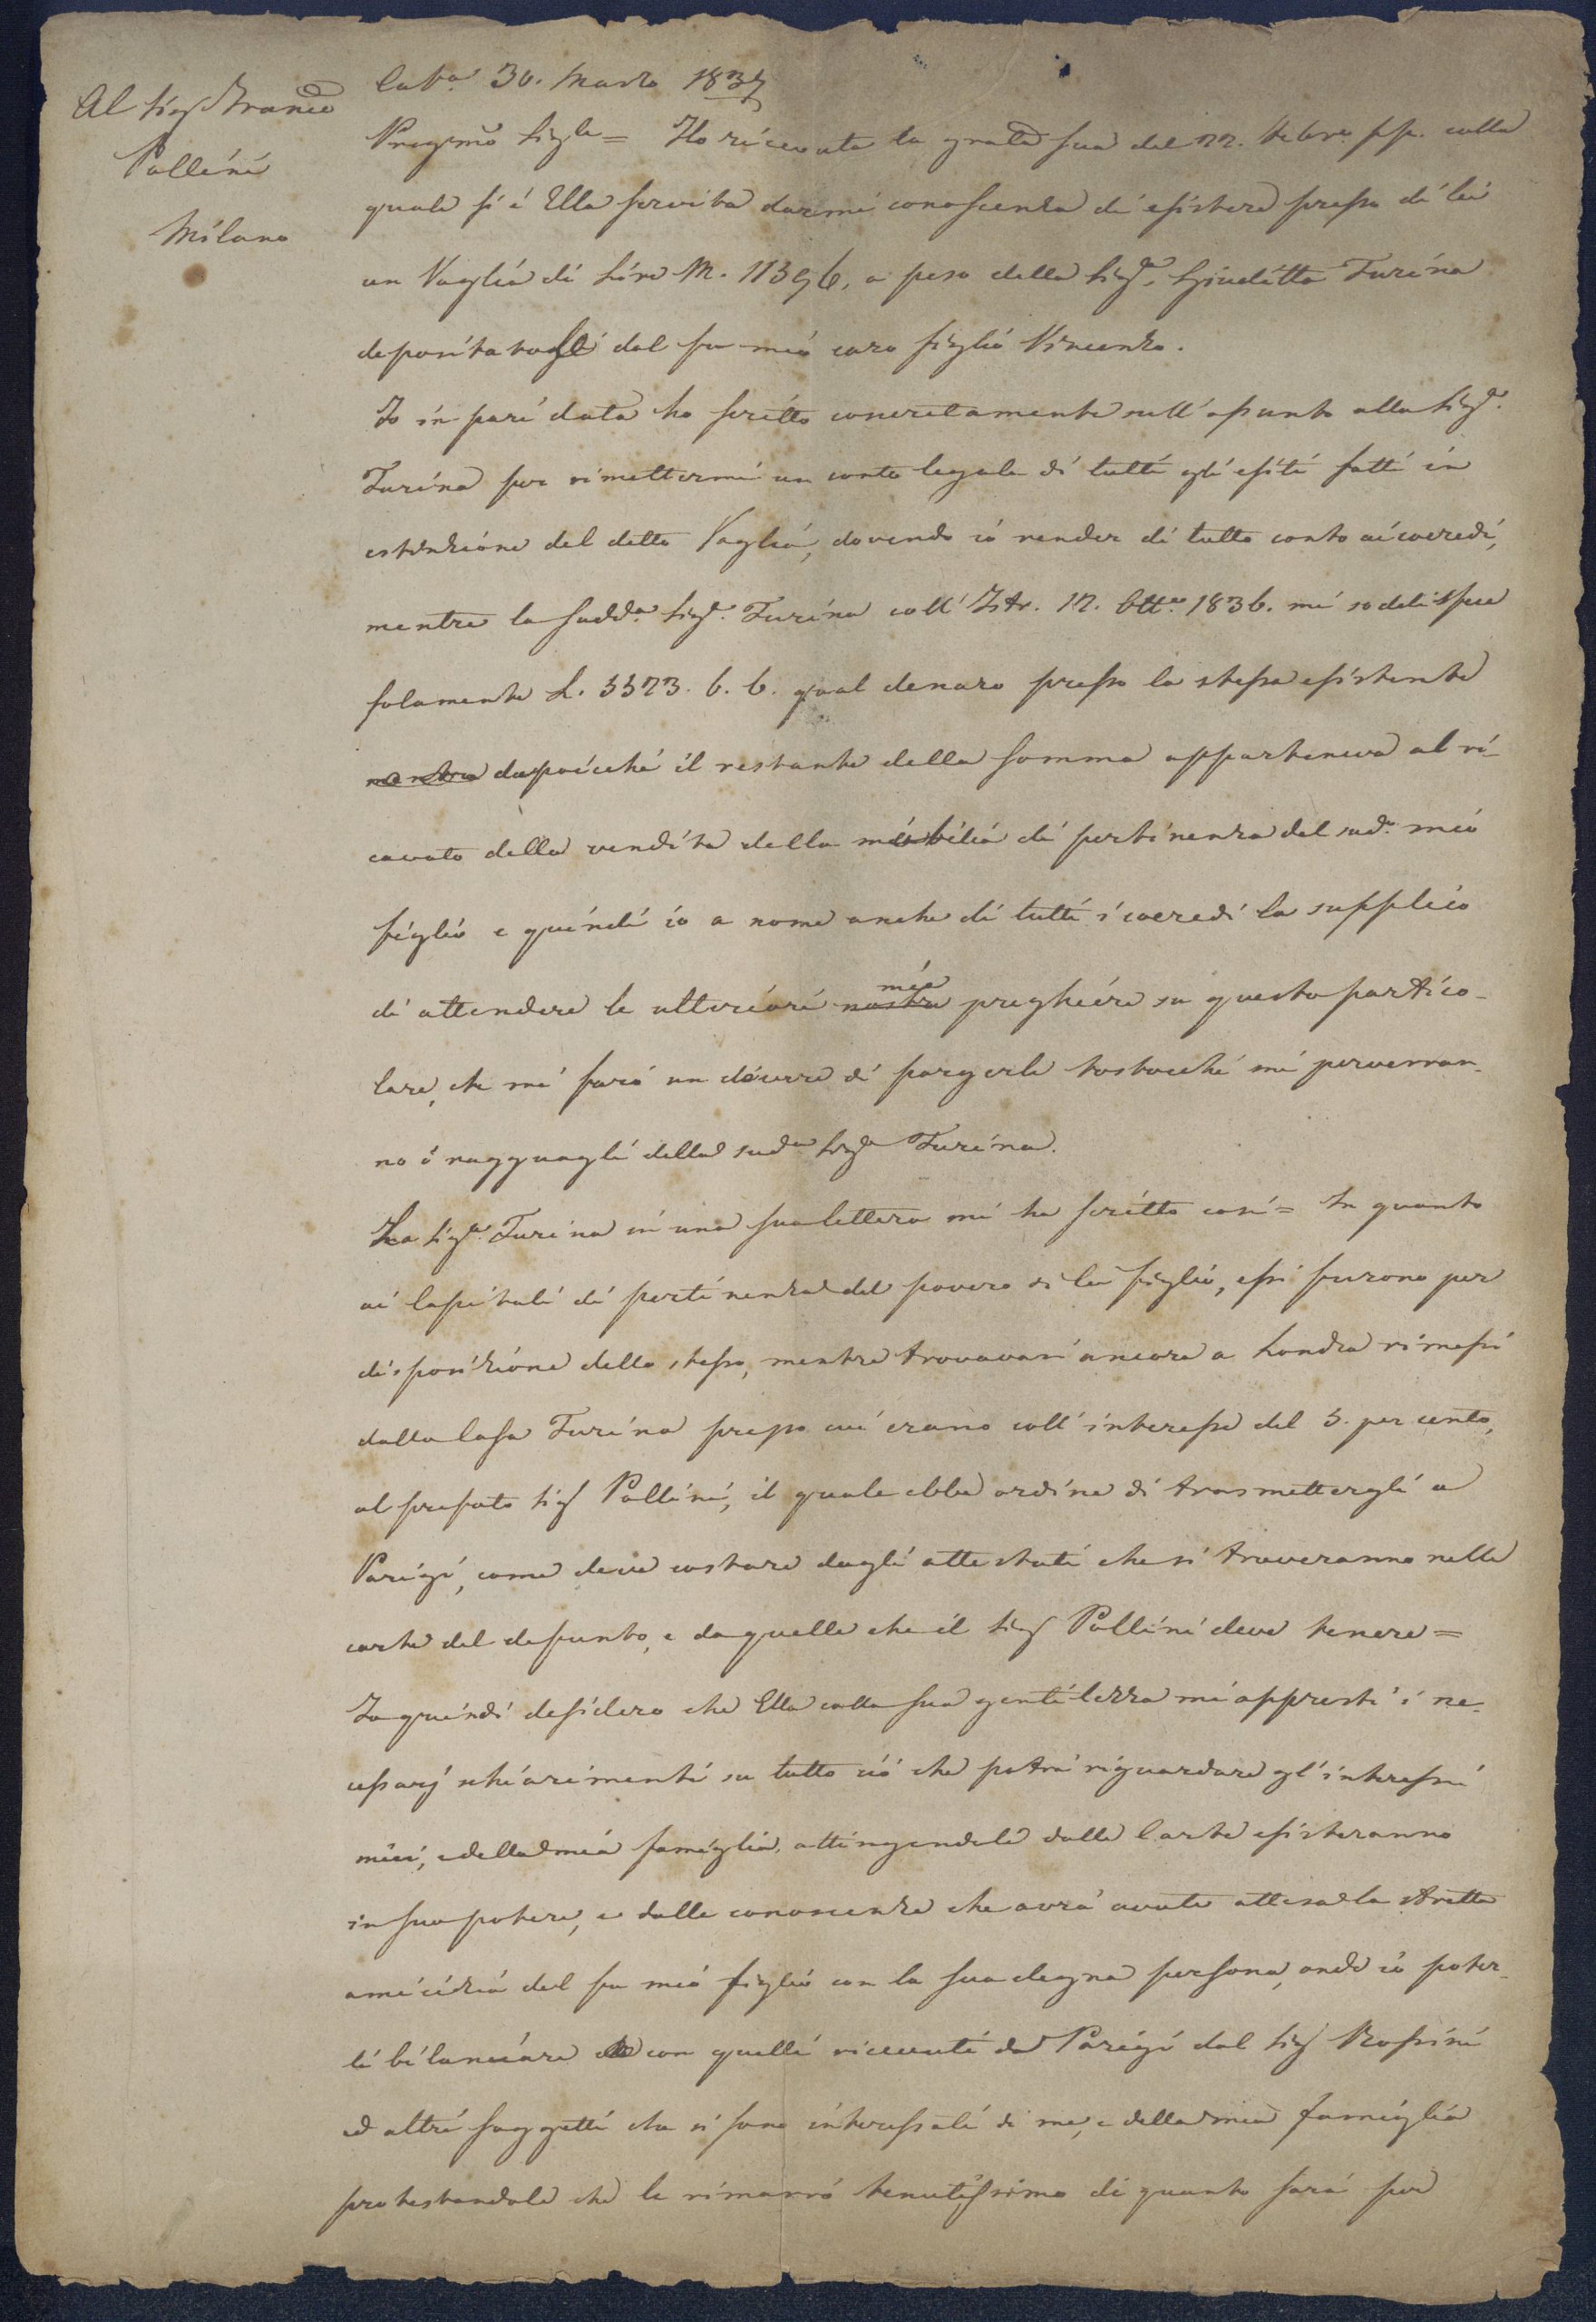 Al Sig.r Franco
Pollini
Milano
Cat.a 30. Marzo 1837
Pregmo Sig.e = Ho ricevuta la grata sua del 22. Febro. pp. colla
quale si è Ella servita darmi conoscenza di esistere presso di lei
un Vaglia di Lire M. 11396, a peso della Sig.a Giuditta Turina
depositatogli dal fu mio caro figlio Vincenzo.
Io in pari data ho scritto concretamente sull'assunto alla Sig.a
Turina per rimettermi un conto legale di tutti gli esiti fatti in
estinzione del detto Vaglia, dovendo io render di tutto conto ai coeredi,
mentre la sudd.a Sig.a Turina coll' 12. Ott.e 1836. mi sodelisfece
solamente L. 3323. 6. 6. qual denaro presso la stessa esistente
mentre dapoicché il restante della somma apparteneva al ri-
cavato della vendita della mobilia di pertinenza del sud.o mio
figlio e quindi io a nome anche di tutti i coeredi la supplico
di attendere le ulteriori nostre mie preghiere su questo partico-
lare, che mi farò un dovere di porgerle tostocché mi perverran-
no i ragguagli della sud.a Sig.a Turina.
La Sig.a Turina in una sua lettera mi ha scritto così = In quanto
ai Capitali di pertinenza del povero di lei figlio, essi furono per
disposizione dello stesso, mentre trovavasi ancora a Londra rimessi
dalla Casa Turina presso cui erano coll'interesse del 5. per cento,
al prefato Sig.r Pollini, il quale ebbe ordine di trasmettergli a
Parigi, come deve costare dagli attestati che si troveranno nelle
carte del defunto, e da quelle che il Sig.r Pollini deve tenere =
Io quindi desidero che Ella colla sua gentilezza mi appresti i ne-
cessarj schiarimenti su tutto ciò che potrà riguardare gl'interessi
miei, e della mia famiglia, attingendoli dalle Carte esisteranno
in suo potere, e dalle conoscenze che avrà avute attesa la stretta
amicizia del fu mio figlio con la sua degna persona, onde io poter-
li bilanciare con quelli ricevuti da Parigi dal Sig.r Rossini
ed altri soggetti che si sono interessati di me, e della mia famiglia
protestandole che le rimarrò tenutissimo di quanto sarà per